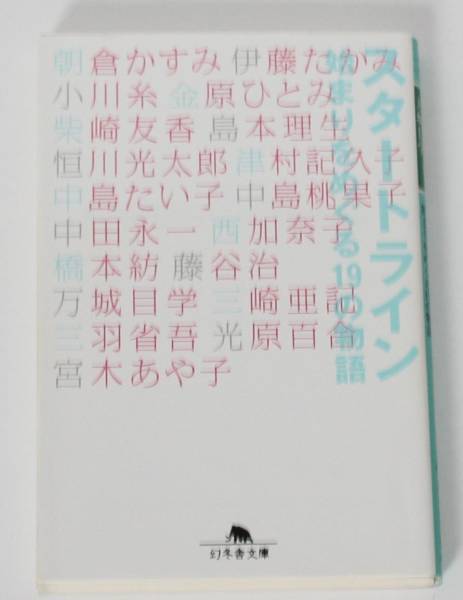 スタートライン
始まりをめぐる19の物語
朝倉かすみ 伊藤たかみ
小川糸 金原ひとみ
柴崎友香 島本理生
恒川光太郎 津村記久子
中島たい子 中島桃果子
中田永一 西加奈子
橋本紡 藤谷治
万城目学 三崎亜記
三羽省吾 光原百合
宮木あや子
幻冬舎文庫